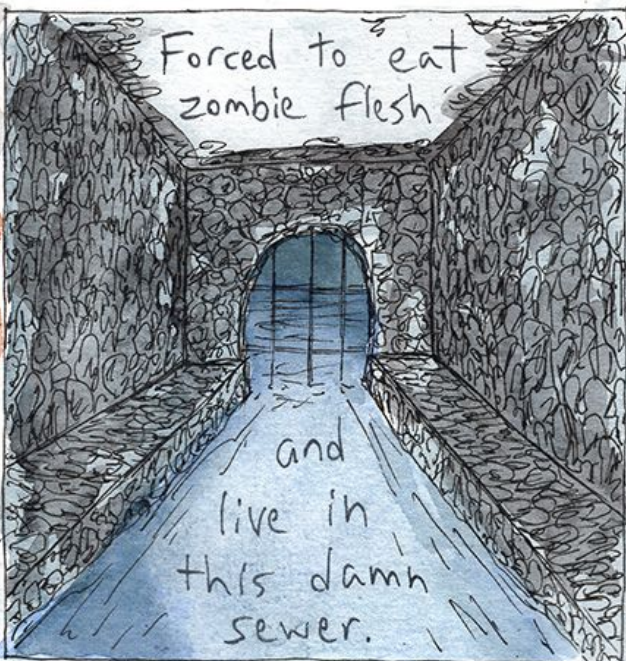 Forced to eat
zombie flesh
and
live in
this damn
sewer.